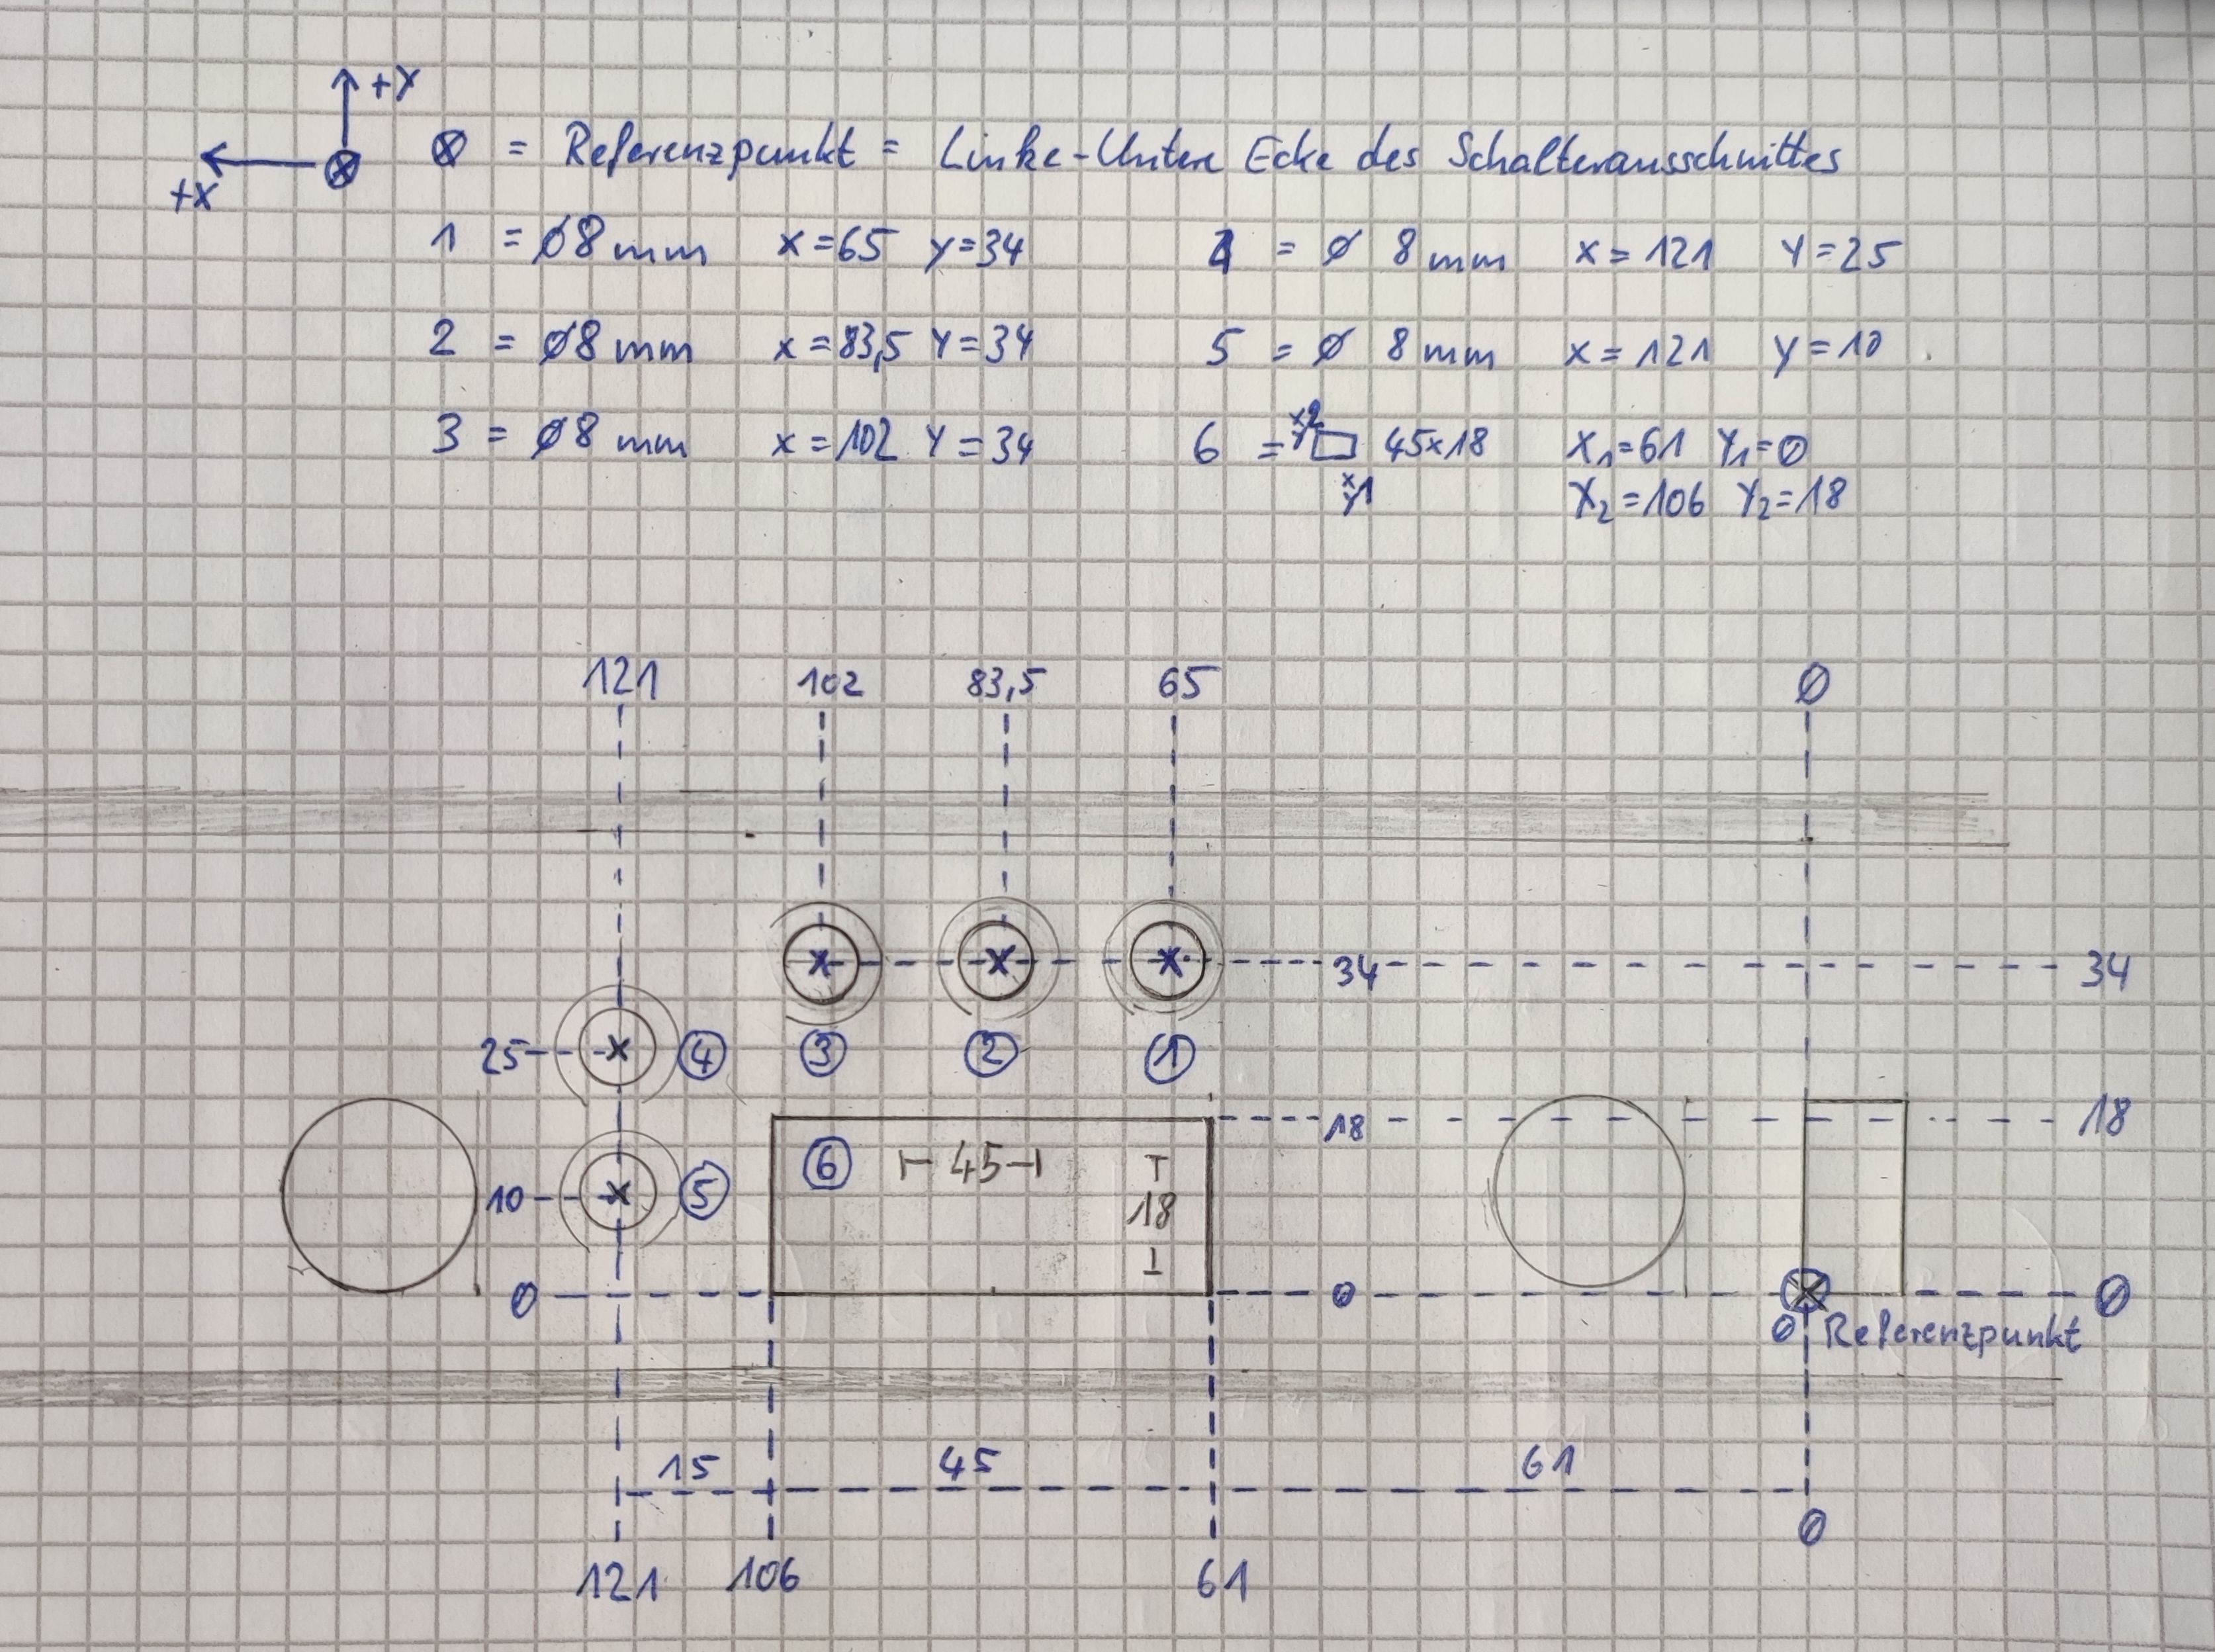 +Y
⊗ = Referenzpunkt = Linke-Untere Ecke des Schalterausschnittes
+X
1 = Ø8mm x=65 y=34
4 = Ø 8mm x=121 Y=25
2 = Ø8mm x=83,5 Y=34
5 = Ø 8mm x=121 y=10
3 = Ø8mm x=102 Y=34
6 = xy2 ▭ 45x18 X₁=61 Y₁=0
xy1 X₂=106 Y₂=18
121 102 83,5 65 0
34 34
25 4 3 2 1
18 18
6 45
10 5 18
0 0 0
0 Referenzpunkt
15 45 61
0
121 106 61